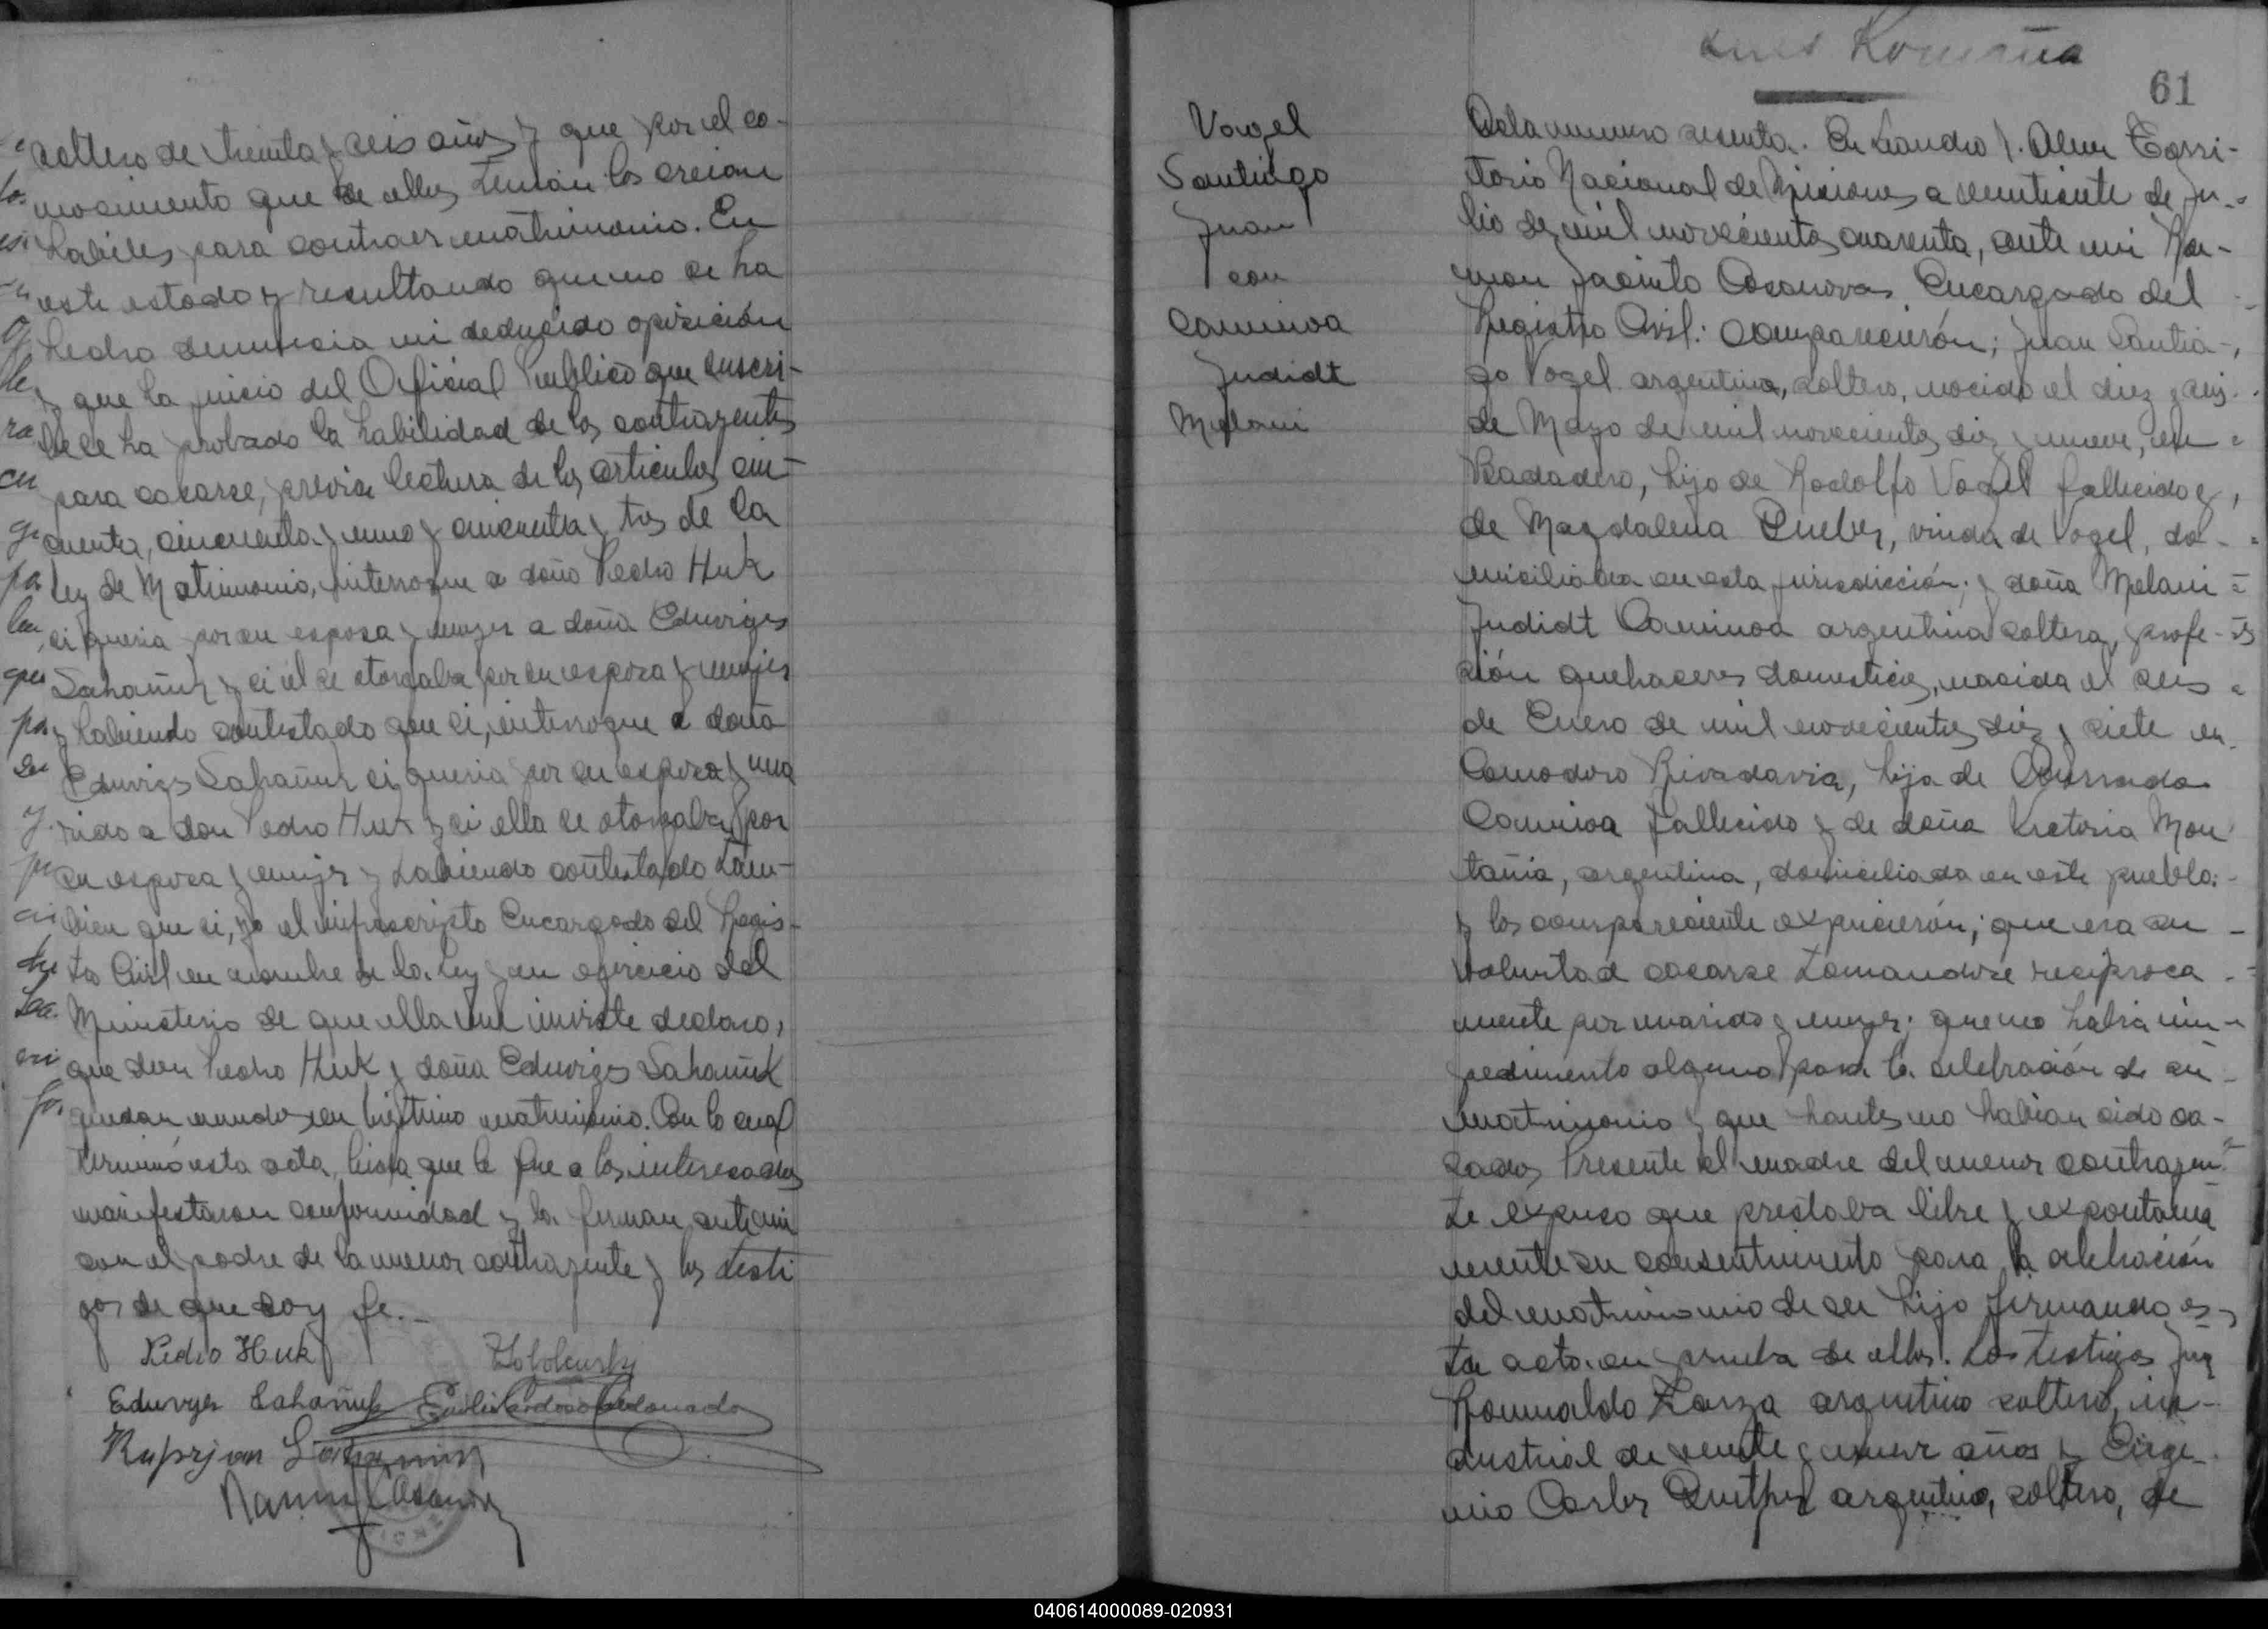 soltero de treinta y seis años y que por el co-
nocimiento que de ellos tenian los creian
habiles para contraer matrimonio. En
este estado y resultando que no se ha
hecho denuncia ni deducido oposición
y que ha juicio del Oficial Publico que suscri-
be se ha probado la habilidad de los contrayentes
para casarse, previa lectura de los articulos cin-
cuenta, cincuenta y uno y cincuenta y tres de la
ley de Matrimonio, interrogue a doño Pedro Huk
si queria por su esposa y mujer a doña Eduviges
Sahañuk y si él se otorgaba por su esposa y mujer
y habiendo contestado que si, interrogue a doña
Eduviges Sahañuk si queria por su esposo y ma
rido a don Pedro Huk y si ella se otorgaba por
su esposa y mujer y habiendo contestado tam-
bien que si, yo el infrascripto Encargado del Regis-
tro Civil en nombre de la ley y en ejercicio del
Ministerio de que ella me inviste declaro,
que don Pedro Huk y doña Eduviges Sahañuk
quedan unidos en legitimo matrimonio. Con lo cual
terminó esta acta, leida que le fue a los interesados
manifestaron conformidad y la firman ante mi
con el padre de la menor contrayente y los testi
gos de que doy fe.-
Pedro Huk
Eduvyes Sahañuk
61
Vogel
Santiago
Juan
con
Caminoa
Judidt
Melani
Acta numero sesenta. En Leandro N. Alem Terri-
torio Nacional de Misiones a veintisiete de Ju-
lio de mil novecientos cuarenta, ante mi Ra-
mon Jacinto Casanova Encargado del
Registro Civil: comparecierón; Juan Santia-
go Vogel argentino, soltero, nacido el diez y seis
de Mayo de mil novecientos diez y nueve, en
hijo de Rodolfo Vogel fallecido y
de Magdalena viuda de Vogel, do-
miciliada en esta jurisdicción; y doña Melani
Judidt Caminoa argentina soltera, profe-
sión quehaceres domesticos, nacida el seis
de Enero de mil novecientos diez y siete en
Comodoro Rivadavia, hija de Conrrado
Caminoa fallecido y de doña Victoria Mon
tañia, argentina, domiciliada en este pueblo:
y los compareciente expusierón; que era su
voluntad casarse tomandose reciproca
mente por marido y mujer; que no habia im-
pedimento alguno para la celebración de su
matrimonio y que hantes no habian sido ca-
sados Presente el madre del menor contrayen-
te expuso que prestaba libre y expontanea
mente su consentimiento para la celebración
del matrimonio de su hijo firmando es-
ta acta en prueba de ellos. Los testigos
Romualdo argentino soltero, in-
dustrial de veinte y nueve años y Euge-
nio Carlos argentino, soltero, de
040614000089-020931